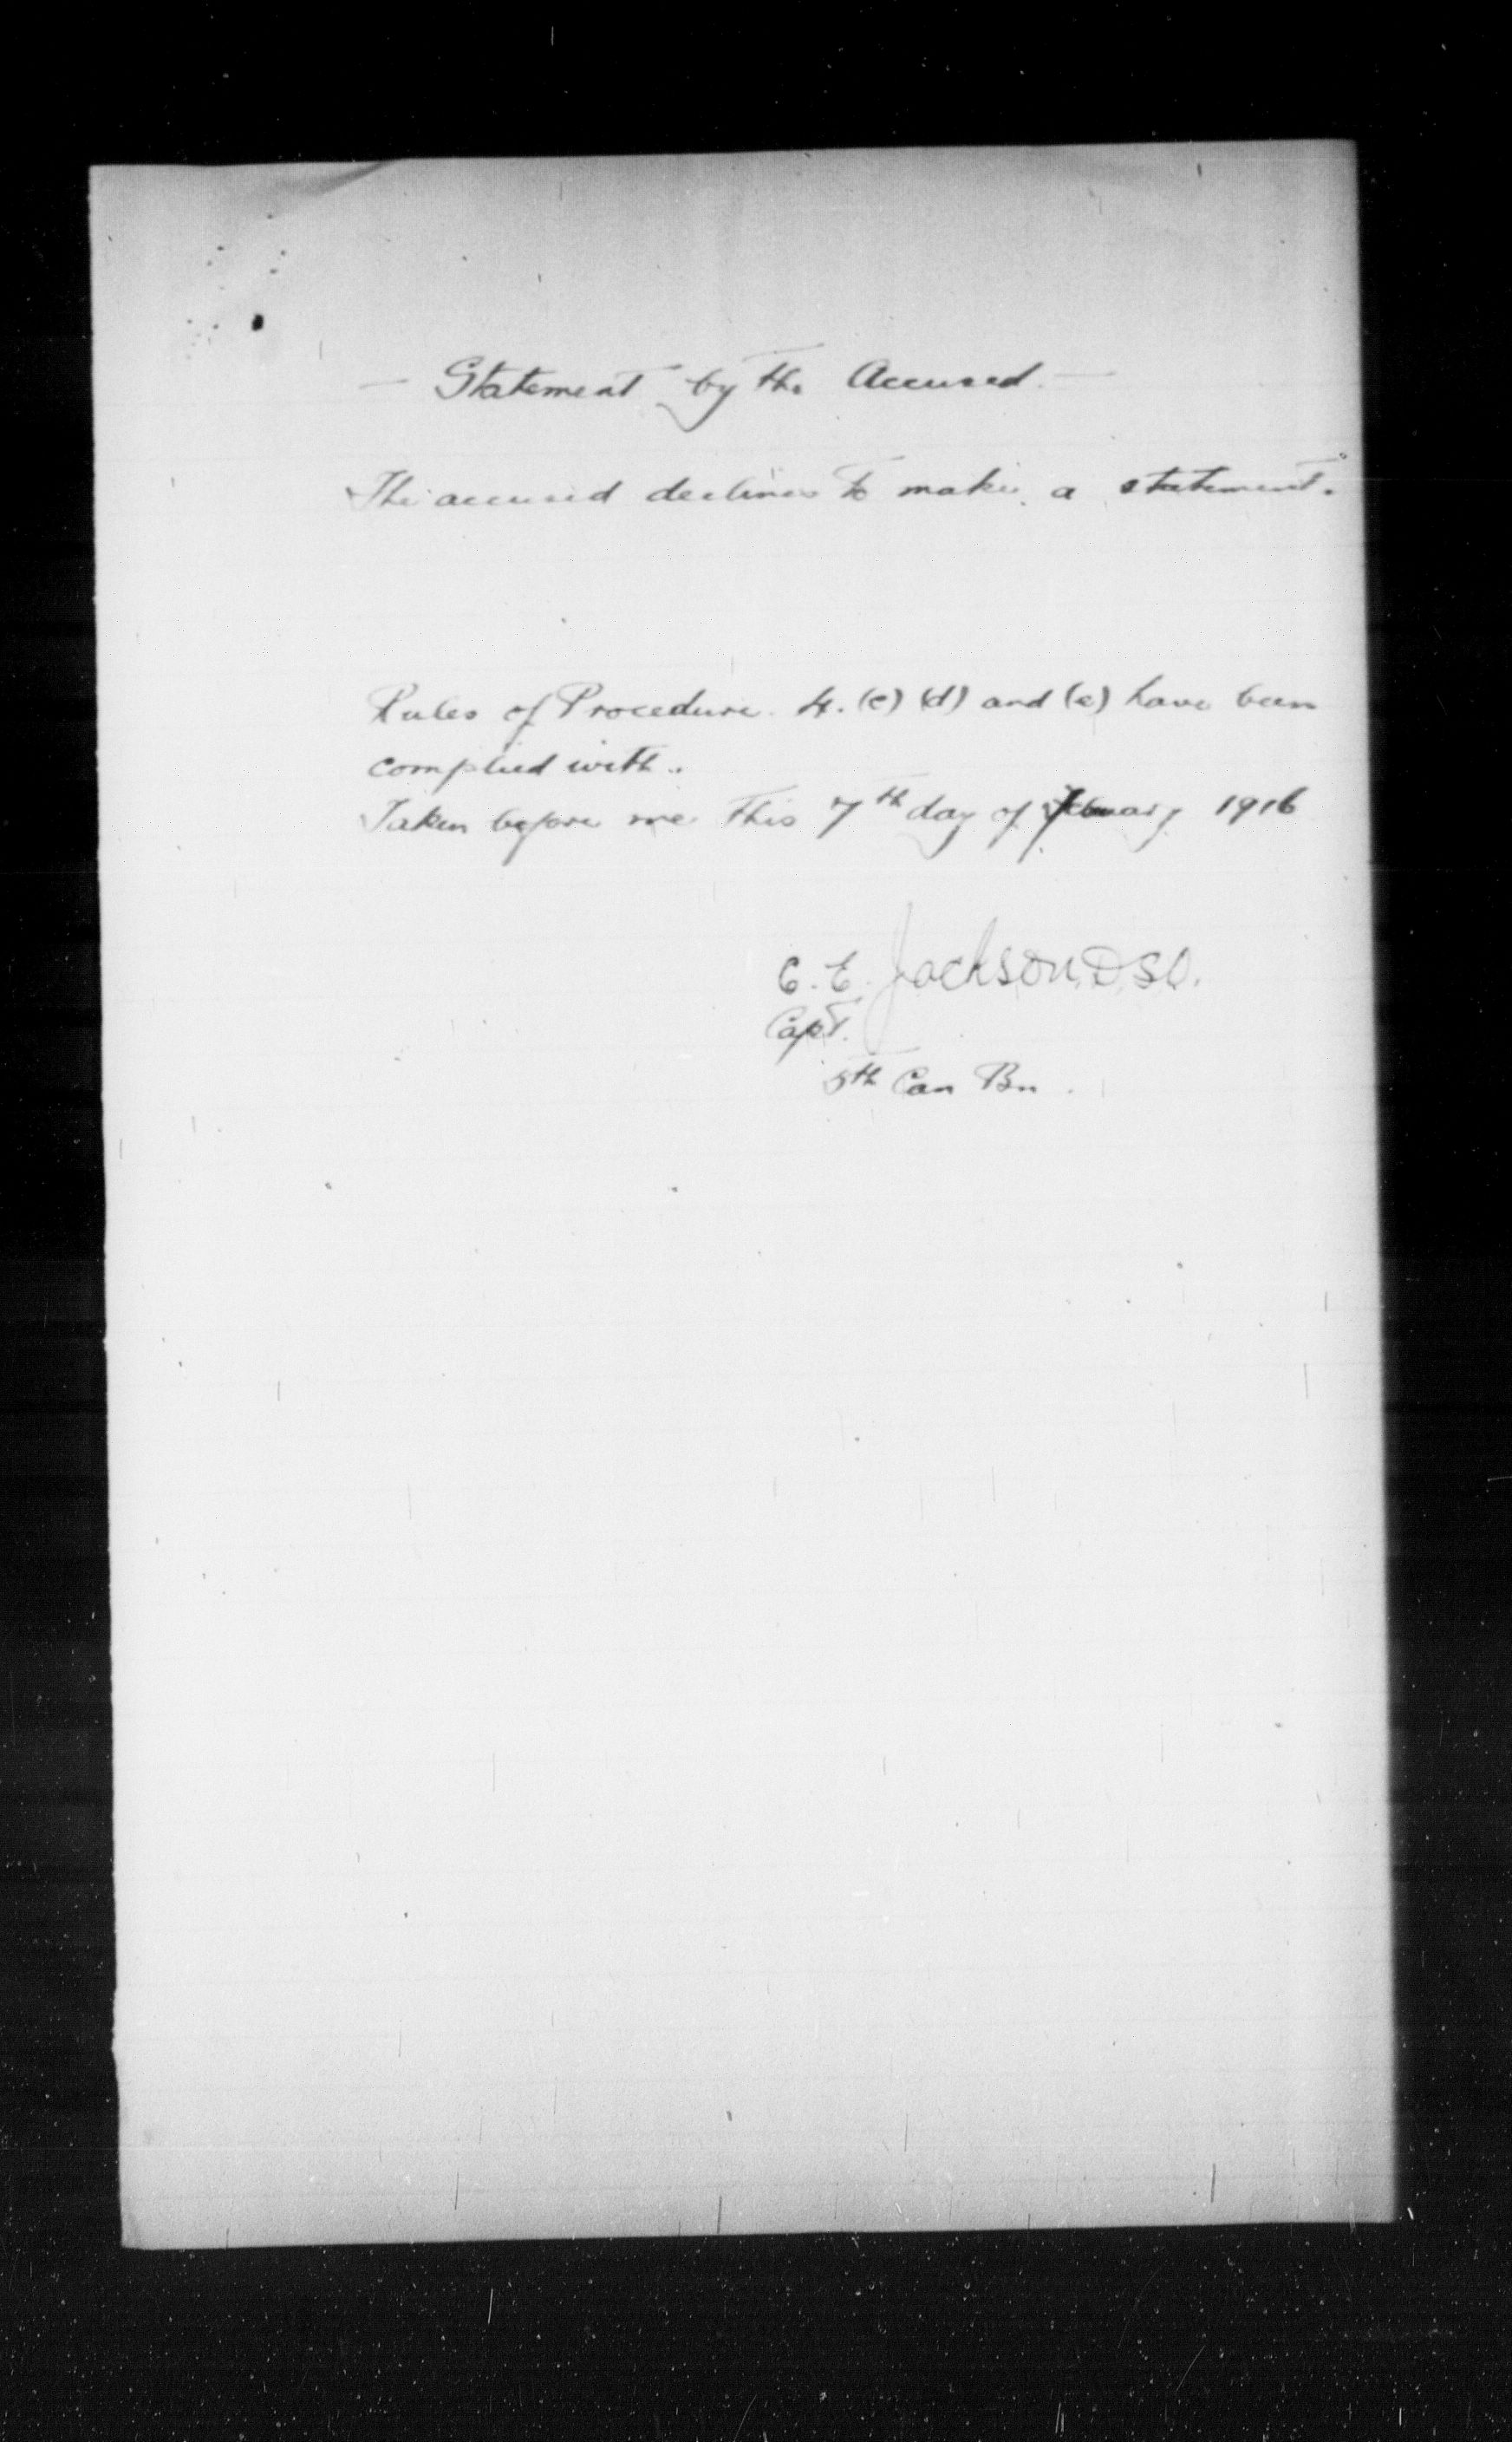 — Statement by the Accused. —
The accused declines to make a statement.
Rules of Procedure. 4. (c) (d) and (e) have been
complied with.
Taken before me this 7th day of February 1916
C. E. Jackson, D.S.O.
Capt.
5th Can Bn.